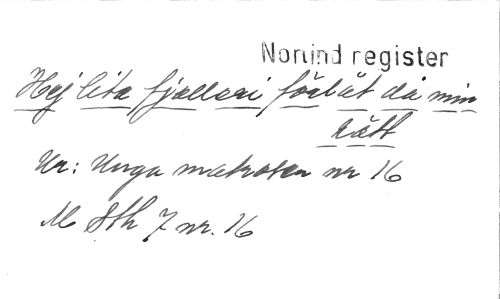 Norlind register
Hej lita fjällani förlåt då min
rätt
Ur: Unga matrosen nr 16
M Sth 7 nr. 16